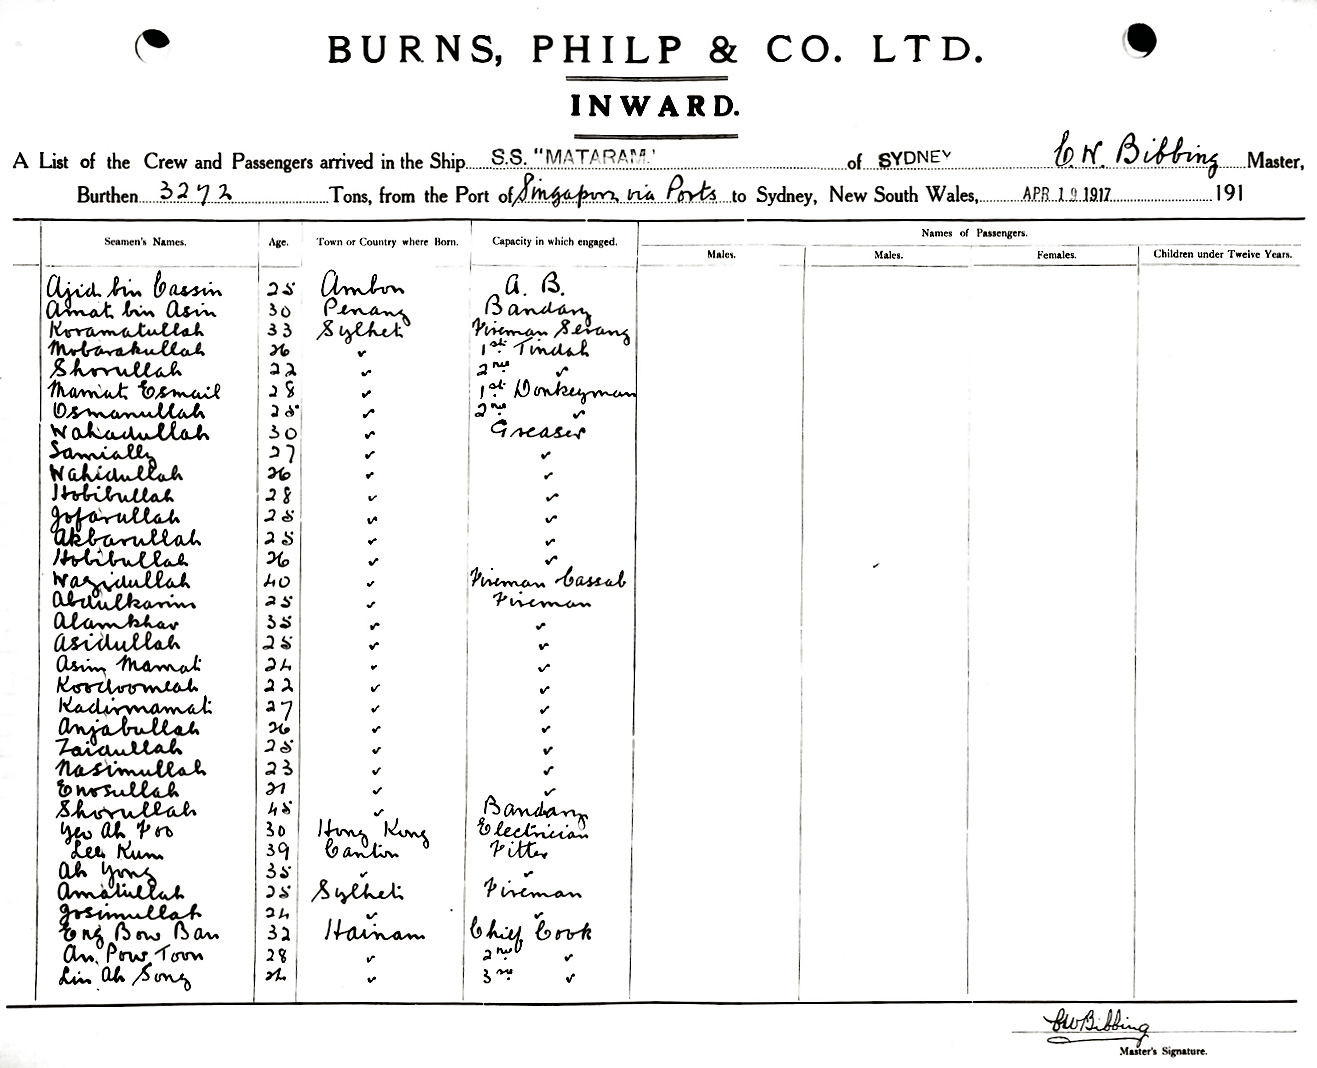 BURNS, PHILP & CO. LTD.
INWARD.
A List of the Crew and Passengers arrived in the Ship S.S. "MATARAM." of SYDNEY C. W. Bibbing Master,
Burthen 3272 Tons, from the Port of Singapore via Ports to Sydney, New South Wales, APR 19 1917 191
Names of Passengers.
Seamen's Names. Age. Town or Country where Born. Capacity in which engaged.
Males. Males. Females. Children under Twelve Years.
Ajid bin Cassin 25 Ambon A. B.
Amat bin Asin 30 Penang Bandary
Koramatullah 33 Sylhet Fireman Serang
Mobarakullah 26 " 1st Tindal
Shorullah 22 " 2nd "
Mamat Esmail 28 " 1st Donkeyman
Osmanullah 25 " 2nd "
Wahadullah 30 " Greaser
Samially 27 " "
Wahidullah 26 " "
Hobibullah 28 " "
Jofarullah 25 " "
Akbarullah 25 " "
Hobibullah 26 " "
Wazidullah 40 " Fireman Cassab
Abdulkarim 25 " Fireman
Alamkhar 35 " "
Asidullah 25 " "
Asim Mamat 24 " "
Koodoomeah 22 " "
Kadirmamat 27 " "
Anjabullah 26 " "
Zaidullah 25 " "
Nasimullah 23 " "
Enosullah 21 " "
Shorullah 45 " Bandary
Yeo Ah Foo 30 Hong Kong Electrician
Lee Kum 39 Canton Fitter
Ah Yong 35 " "
Amatullah 25 Sylhet Fireman
Josimullah 24 " "
Eng Bow Ban 32 Hainam Chief Cook
An Pow Toon 28 " 2nd "
Lim Ah Song " 3rd "
CW Bibbing
Master's Signature.